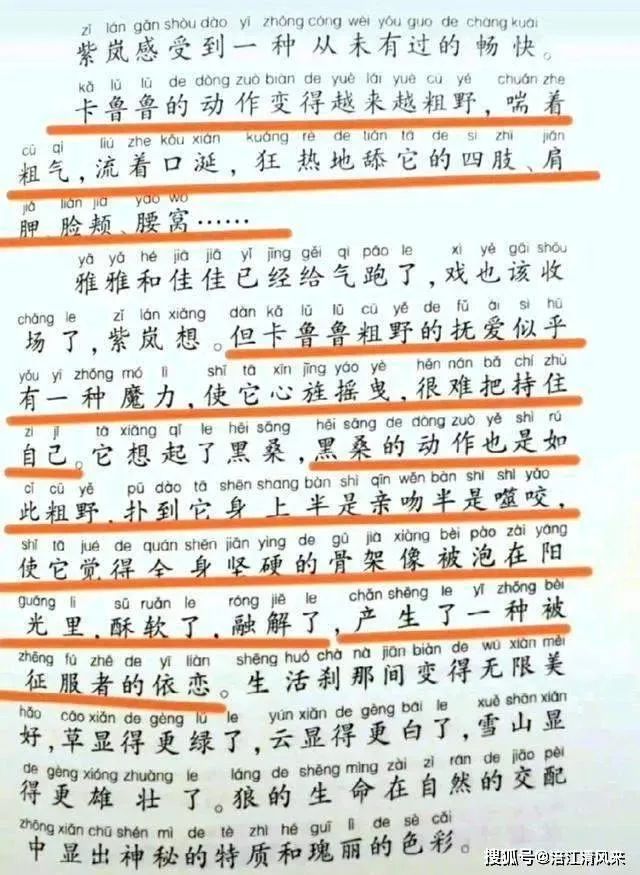 zǐ lán gǎn shòu dào yì zhǒng cóng wèi yǒu guo de chàng kuài
紫岚感受到一种从未有过的畅快。
kǎ lǔ lǔ de dòng zuò biàn de yuè lái yuè cū yě chuǎn zhe
卡鲁鲁的动作变得越来越粗野，喘着
cū qì liú zhe kǒu xián kuáng rè de tiǎn tā de sì zhī jiān
粗气，流着口涎，狂热地舔它的四肢、肩
jiǎ liǎn jiá yāo wō
胛、脸颊、腰窝……
yǎ yǎ hé jiā jiā yǐ jīng gěi qì pǎo le xì yě gāi shōu
雅雅和佳佳已经给气跑了，戏也该收
chǎng le zǐ lán xiǎng dàn kǎ lǔ lǔ cū yě de fǔ ài sì hū
场了，紫岚想。但卡鲁鲁粗野的抚爱似乎
yǒu yì zhǒng mó lì shǐ tā xīn jīng yáo yè hěn nán bǎ chí zhù
有一种魔力，使它心旌摇曳，很难把持住
zì jǐ tā xiǎng qǐ le hēi sāng hēi sāng de dòng zuò yě shì rú
自己。它想起了黑桑，黑桑的动作也是如
cǐ cū yě pū dào tā shēn shang bàn shì qīn wěn bàn shì shì yǎo
此粗野，扑到它身上半是亲吻半是噬咬，
shǐ tā jué de quán shēn jiān yìng de gǔ jià xiàng bèi pào zài yáng
使它觉得全身坚硬的骨架像被泡在阳
guāng li sū ruǎn le róng jiě le chǎn shēng le yì zhǒng bèi
光里，酥软了，融解了，产生了一种被
zhēng fú zhě de yī liàn shēng huó chà nà jiān biàn de wú xiàn měi
征服者的依恋。生活刹那间变得无限美
hǎo cǎo xiǎn de gèng lǜ le yún xiǎn de gèng bái le xuě shān xiǎn
好，草显得更绿了，云显得更白了，雪山显
de gèng xióng zhuàng le láng de shēng mìng zài zì rán de jiāo pèi
得更雄壮了。狼的生命在自然的交配
zhōng xiǎn chū shén mì de tè zhì hé guī lì de sè cǎi
中显出神秘的特质和瑰丽的色彩。
搜狐号@涪江清风来